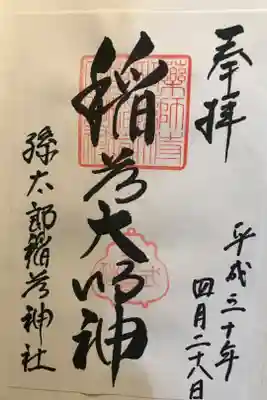 奉拝
平成三十年
四月二十八日
稲荷大明神
藥師寺
孫太郎稲荷神社